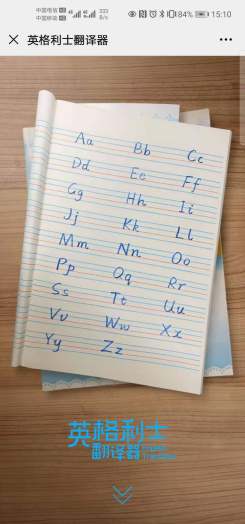 中国电信 HD
中国移动 HD
4G 4G
333
B/s
84%
15:10
英格利士翻译器
Aa Bb Cc
Dd Ee Ff
Gg Hh Ii
Jj Kk Ll
Mm Nn Oo
Pp Qq Rr
Ss Tt Uu
Vv Ww Xx
Yy Zz
英格利士
翻译器